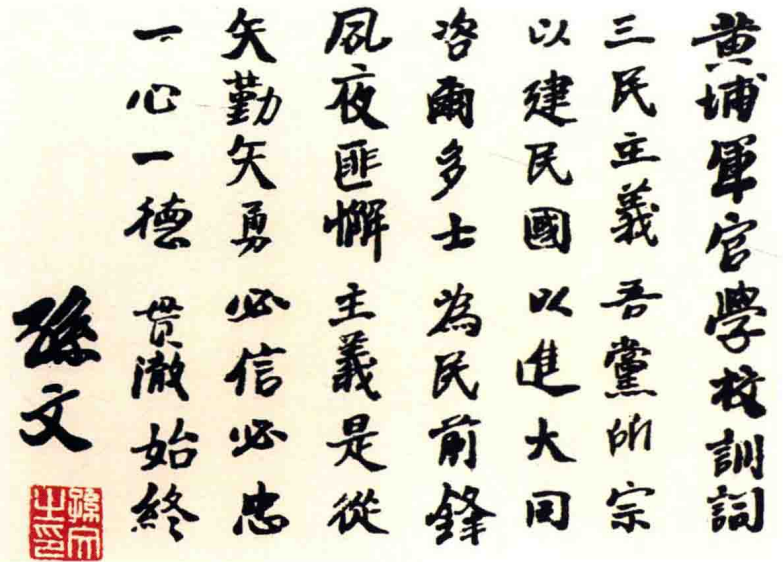 黄埔軍官學校訓詞
三民主義 吾黨所宗
以建民國 以進大同
咨爾多士 為民前鋒
夙夜匪懈 主義是從
矢勤矢勇 必信必忠
一心一德 贯澈始終
孫文
孫文之印